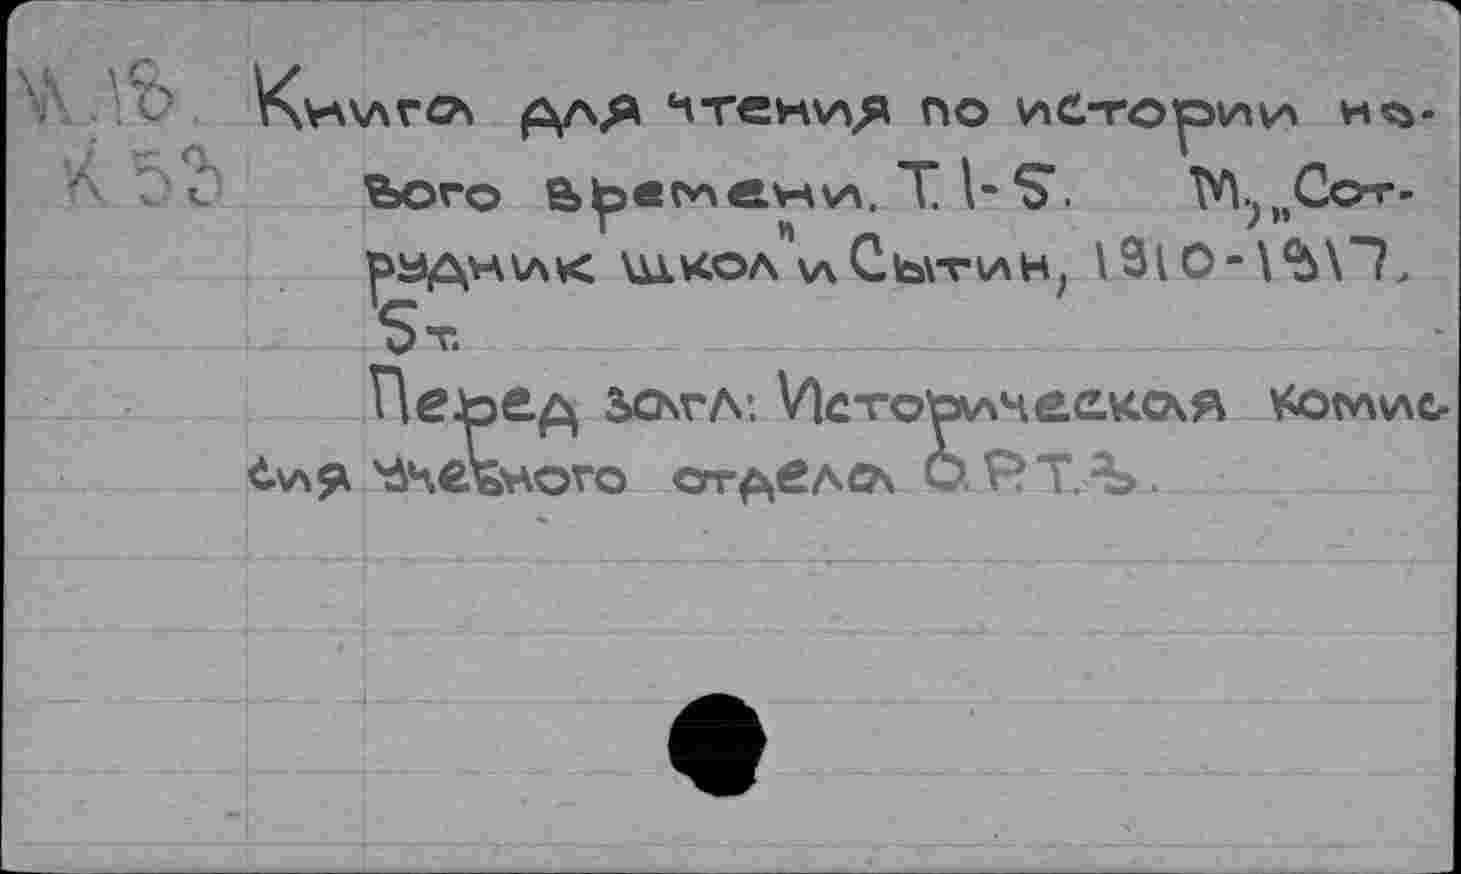 И.18. Книга для чтения по истории но-
К 53 вого времени. Т. 1-5. М., „Сот-
рудник школ" и Сытин, 1910-1917.
5 т.
Перед загл: Историческая комис-
сия Учебного отдела О.Р.Т.З.